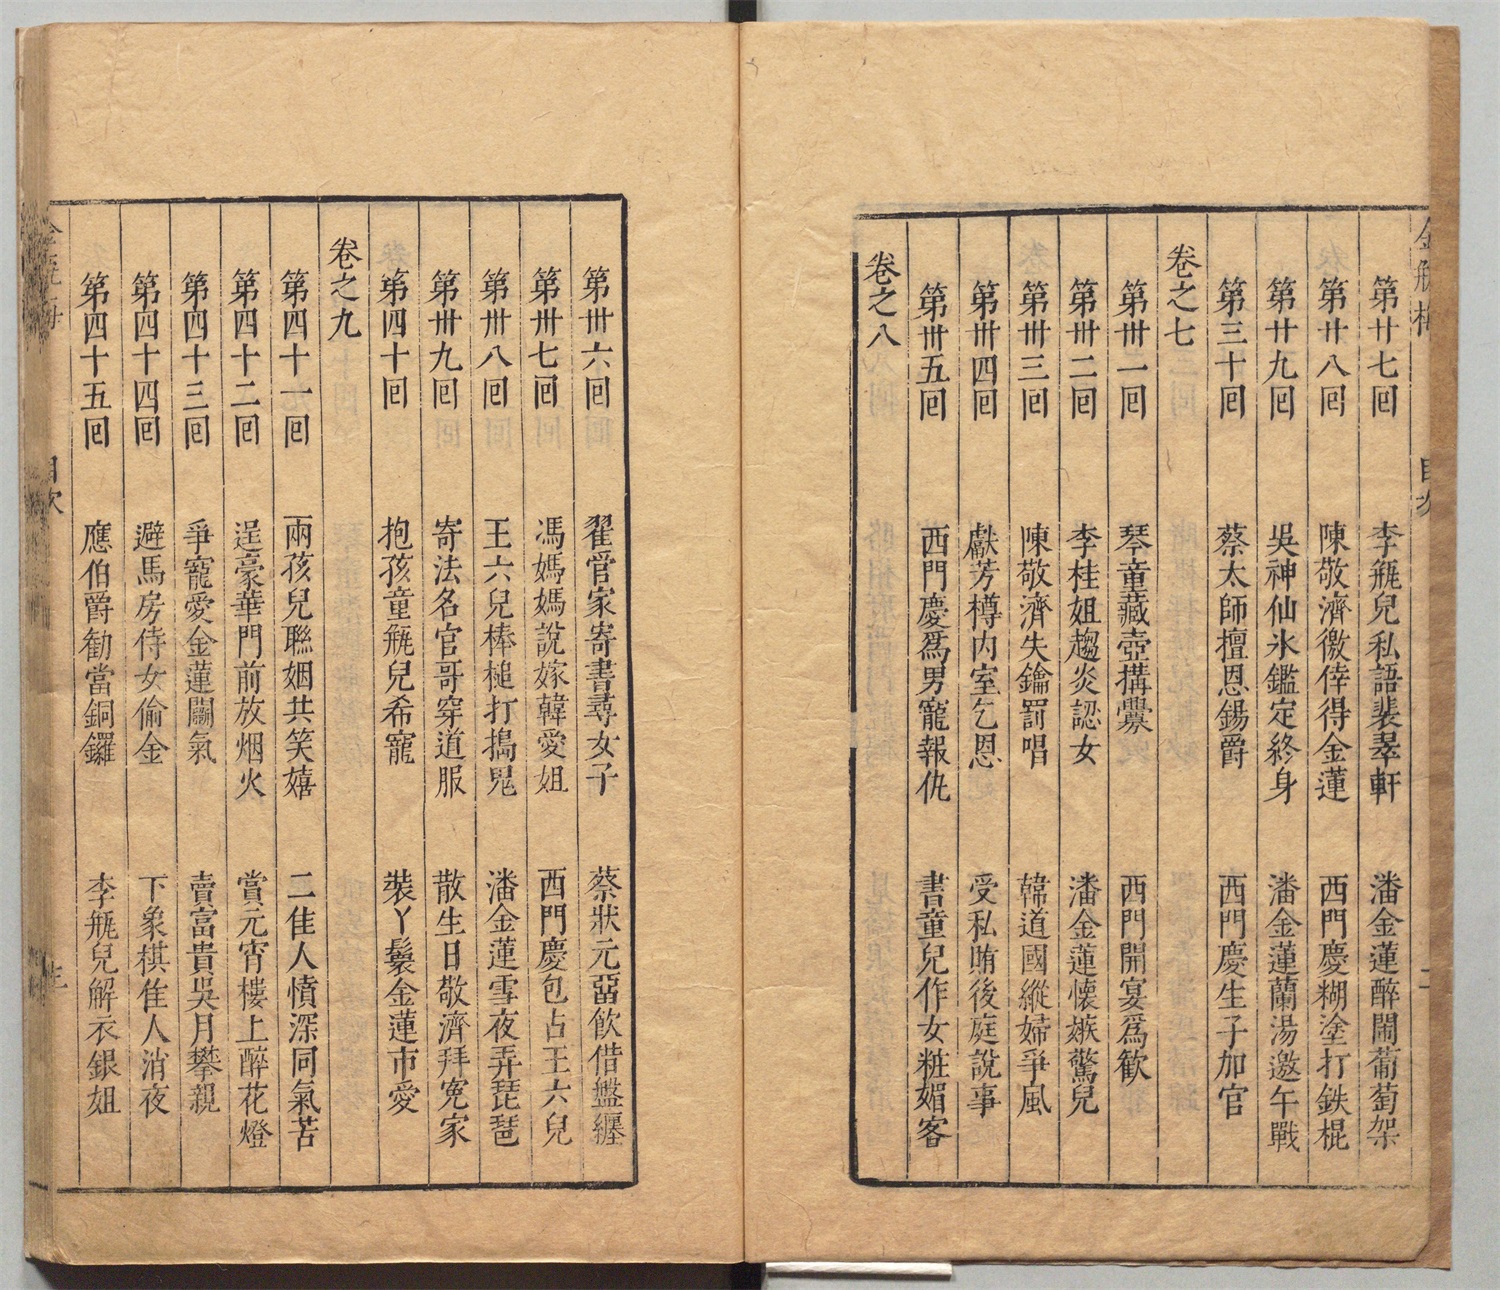 金瓶梅 目次 二
第廿七回 李瓶兒私語翡翠軒 潘金蓮醉鬧葡萄架
第廿八回 陳敬濟徼倖得金蓮 西門慶糊塗打鉄棍
第廿九回 吳神仙氷鑑定終身 潘金蓮蘭湯邀午戰
第三十回 蔡太師擅恩錫爵 西門慶生子加官
卷之七
第卅一回 琴童藏壺搆釁 西門開宴爲歡
第卅二回 李桂姐趨炎認女 潘金蓮懐嫉驚兒
第卅三回 陳敬濟失鑰罰唱 韓道國縱婦爭風
第卅四回 獻芳樽內室乞恩 受私賄後庭說事
第卅五回 西門慶爲男寵報仇 書童兒作女粧媚客
卷之八
第卅六回 翟管家寄書尋女子 蔡狀元畱飲借盤纏
第卅七回 馮媽媽說嫁韓愛姐 西門慶包占王六兒
第卅八回 王六兒棒槌打搗鬼 潘金蓮雪夜弄琵琶
第卅九回 寄法名官哥穿道服 散生日敬濟拜冤家
第四十回 抱孩童瓶兒希寵 裝丫鬟金蓮市愛
卷之九
第四十一回 兩孩兒聯姻共笑嬉 二佳人憤深同氣苦
第四十二回 逞豪華門前放烟火 賞元宵樓上醉花燈
第四十三回 爭寵愛金蓮鬭氣 賣富貴吳月攀親
第四十四回 避馬房侍女偷金 下象棋佳人消夜
第四十五回 應伯爵勸當銅鑼 李瓶兒解衣銀姐
目次